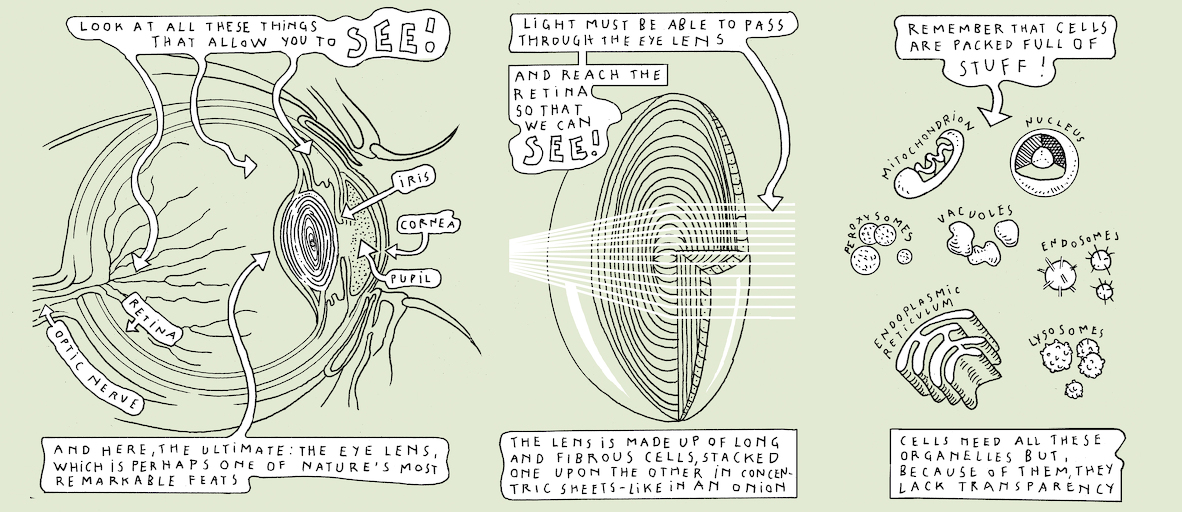 LOOK AT ALL THESE THINGS
THAT ALLOW YOU TO SEE!
IRIS
CORNEA
PUPIL
RETINA
OPTIC NERVE
AND HERE, THE ULTIMATE: THE EYE LENS,
WHICH IS PERHAPS ONE OF NATURE'S MOST
REMARKABLE FEATS
LIGHT MUST BE ABLE TO PASS
THROUGH THE EYE LENS
AND REACH THE
RETINA
SO THAT
WE CAN
SEE!
THE LENS IS MADE UP OF LONG
AND FIBROUS CELLS, STACKED
ONE UPON THE OTHER IN CONCEN-
TRIC SHEETS-LIKE IN AN ONION
REMEMBER THAT CELLS
ARE PACKED FULL OF
STUFF!
MITOCHONDRION
NUCLEUS
PEROXYSOMES
VACUOLES
ENDOSOMES
ENDOPLASMIC
RETICULUM
LYSOSOMES
CELLS NEED ALL THESE
ORGANELLES BUT,
BECAUSE OF THEM, THEY
LACK TRANSPARENCY